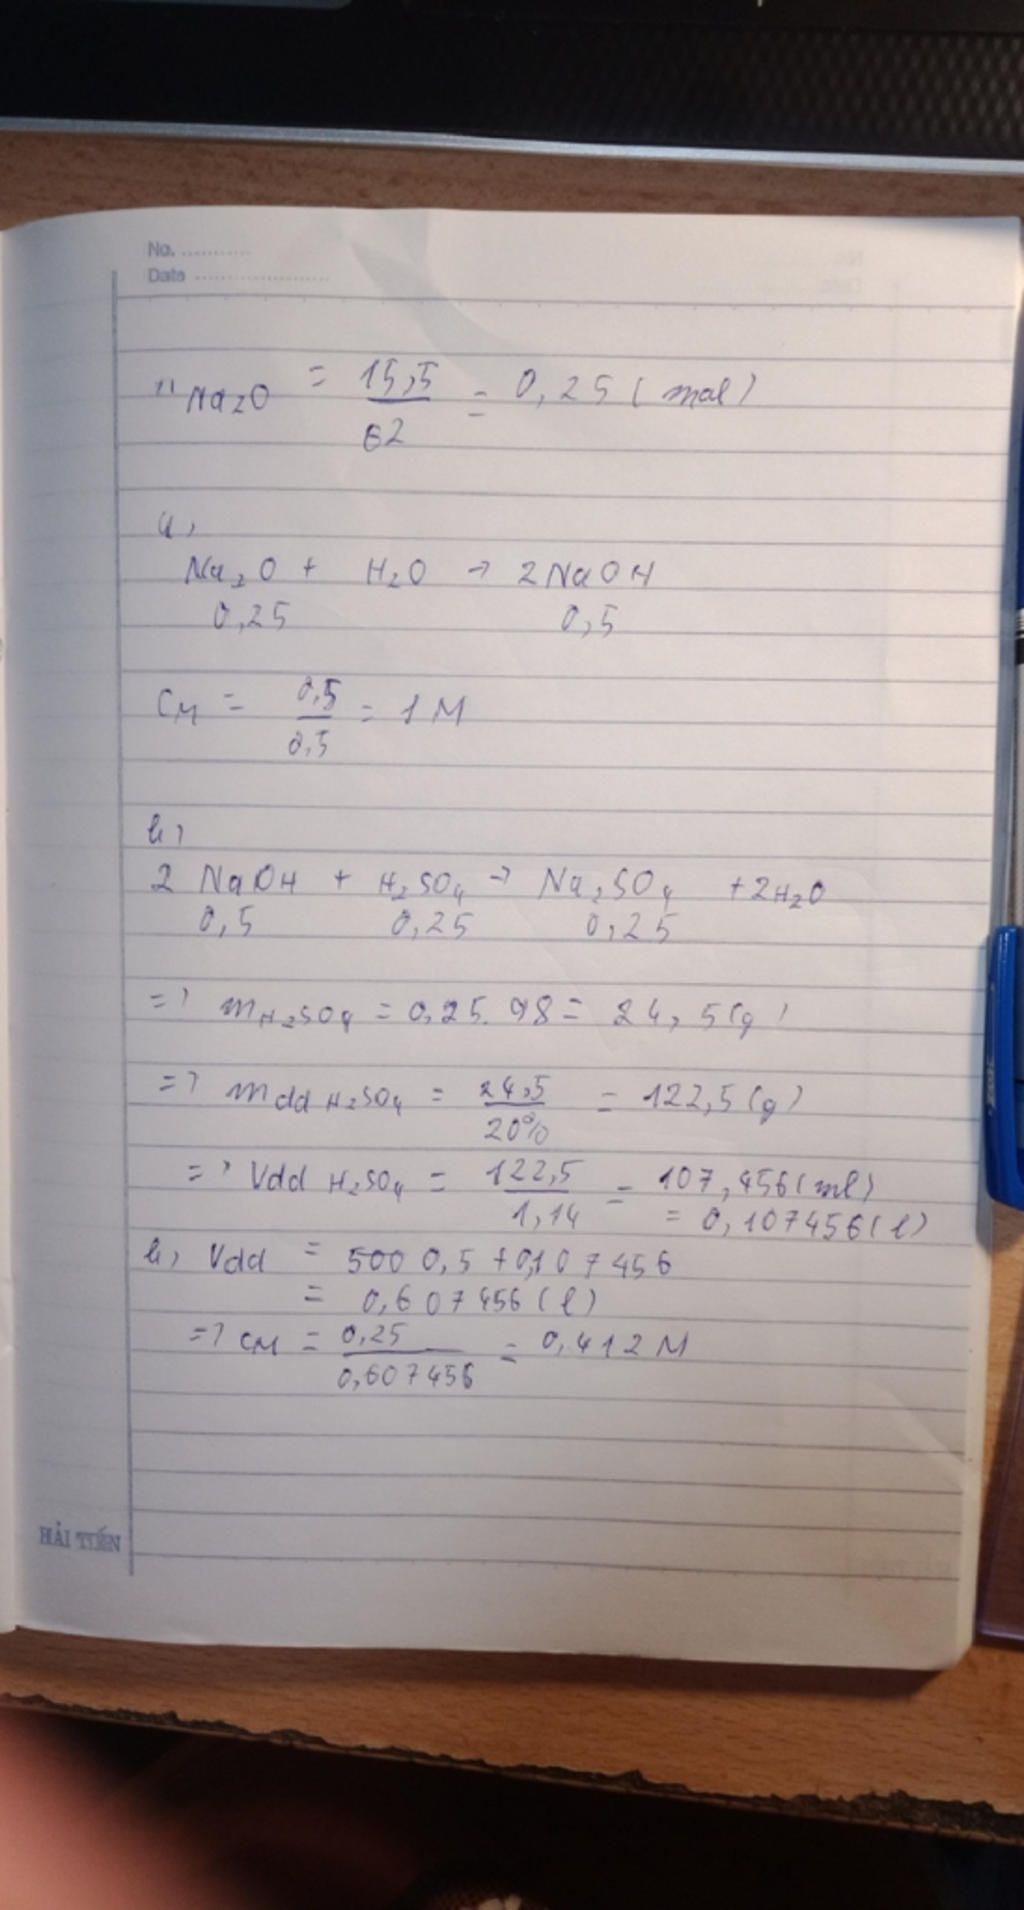 No. ...........
Date ......................
n Na₂O = 15,5 / 62 = 0,25 (mol)
a,
Na₂O + H₂O → 2NaOH
0,25 0,5
CM = 0,5 / 0,5 = 1M
b,
2 NaOH + H₂SO₄ → Na₂SO₄ + 2H₂O
0,5 0,25 0,25
=> mH₂SO₄ = 0,25. 98 = 24,5(g)
=> mdd H₂SO₄ = 24,5 / 20% = 122,5(g)
=> Vdd H₂SO₄ = 122,5 / 1,14 = 107,456(ml)
= 0,107456(l)
b, Vdd = 500 0,5 + 0,107456
= 0,607456(l)
=> CM = 0,25 / 0,607456 = 0,412M
HẢI TIẾN